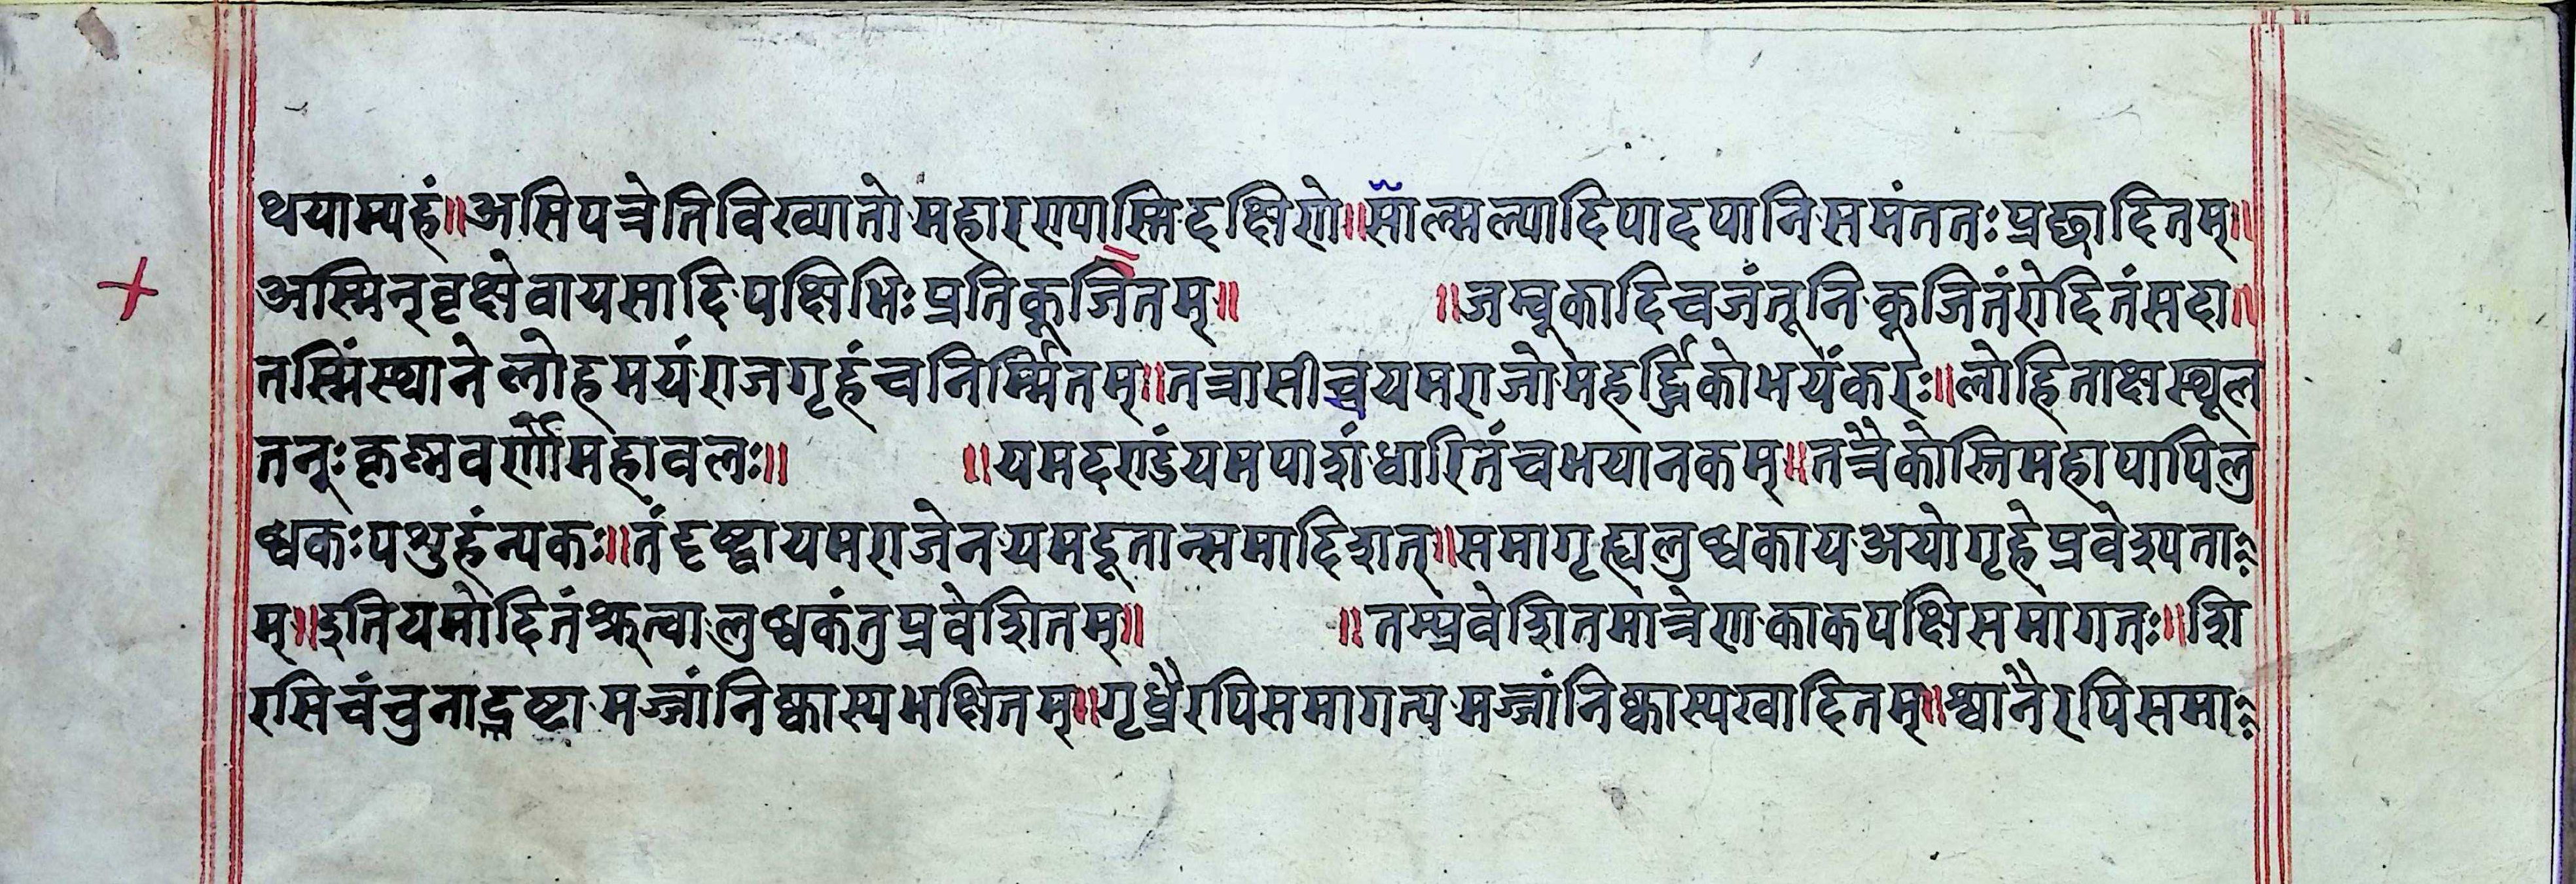 थयाम्यहं॥असिपत्रेतिविख्यातोमहारण्यास्मिदक्षिणे॥साल्मल्यादिपादपानिसमंततःप्रछादितम्॥
अस्मिन्वृक्षेवायसादिपक्षिभिःप्रतिकूजितम्॥ ॥जम्बूकादिचजंतूनिकूजितंरोदितंसदा॥
तस्मिंस्थानेलोहमयंराजगृहंचनिर्म्मितम्॥तत्रासीच्चयमराजोमहर्द्धिकोभयंकरः॥लोहिताक्षस्थूल
तनूःकृष्णवर्णोमहावलः॥ ॥यमदण्डंयमपाशंधारितंचभयानकम्॥तत्रैकोस्तिमहापापिलु
ब्धकःपशुहंन्यकः॥तंदृष्ट्वायमराजेनयमदूतान्समादिशत्॥समागृह्यलुब्धकायअयोगृहेप्रवेश्यता
म्॥इतियमोदितंश्रुत्वालुब्धकंतुप्रवेशितम्॥ ॥तम्प्रवेशितमात्रेणकाकपक्षिसमागतः॥शि
रसिचंचुनाद्रष्टामज्जांनिष्कास्यभक्षितम्॥गृध्रैरपिसमागत्यमज्जांनिष्कास्यखादितम्॥श्वानैरपिसमा